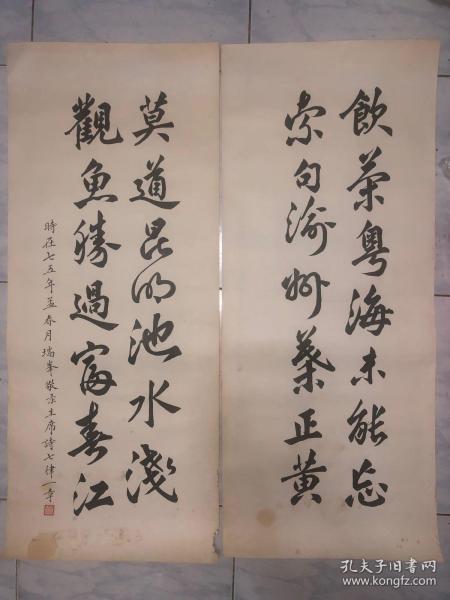 飲茶粤海未能忘
索句渝州葉正黄
莫道昆明池水淺
觀魚勝過富春江
時在七五年孟春月瑞峯敬录主席詩七律一章
孔夫子旧书网
www.kongfz.com